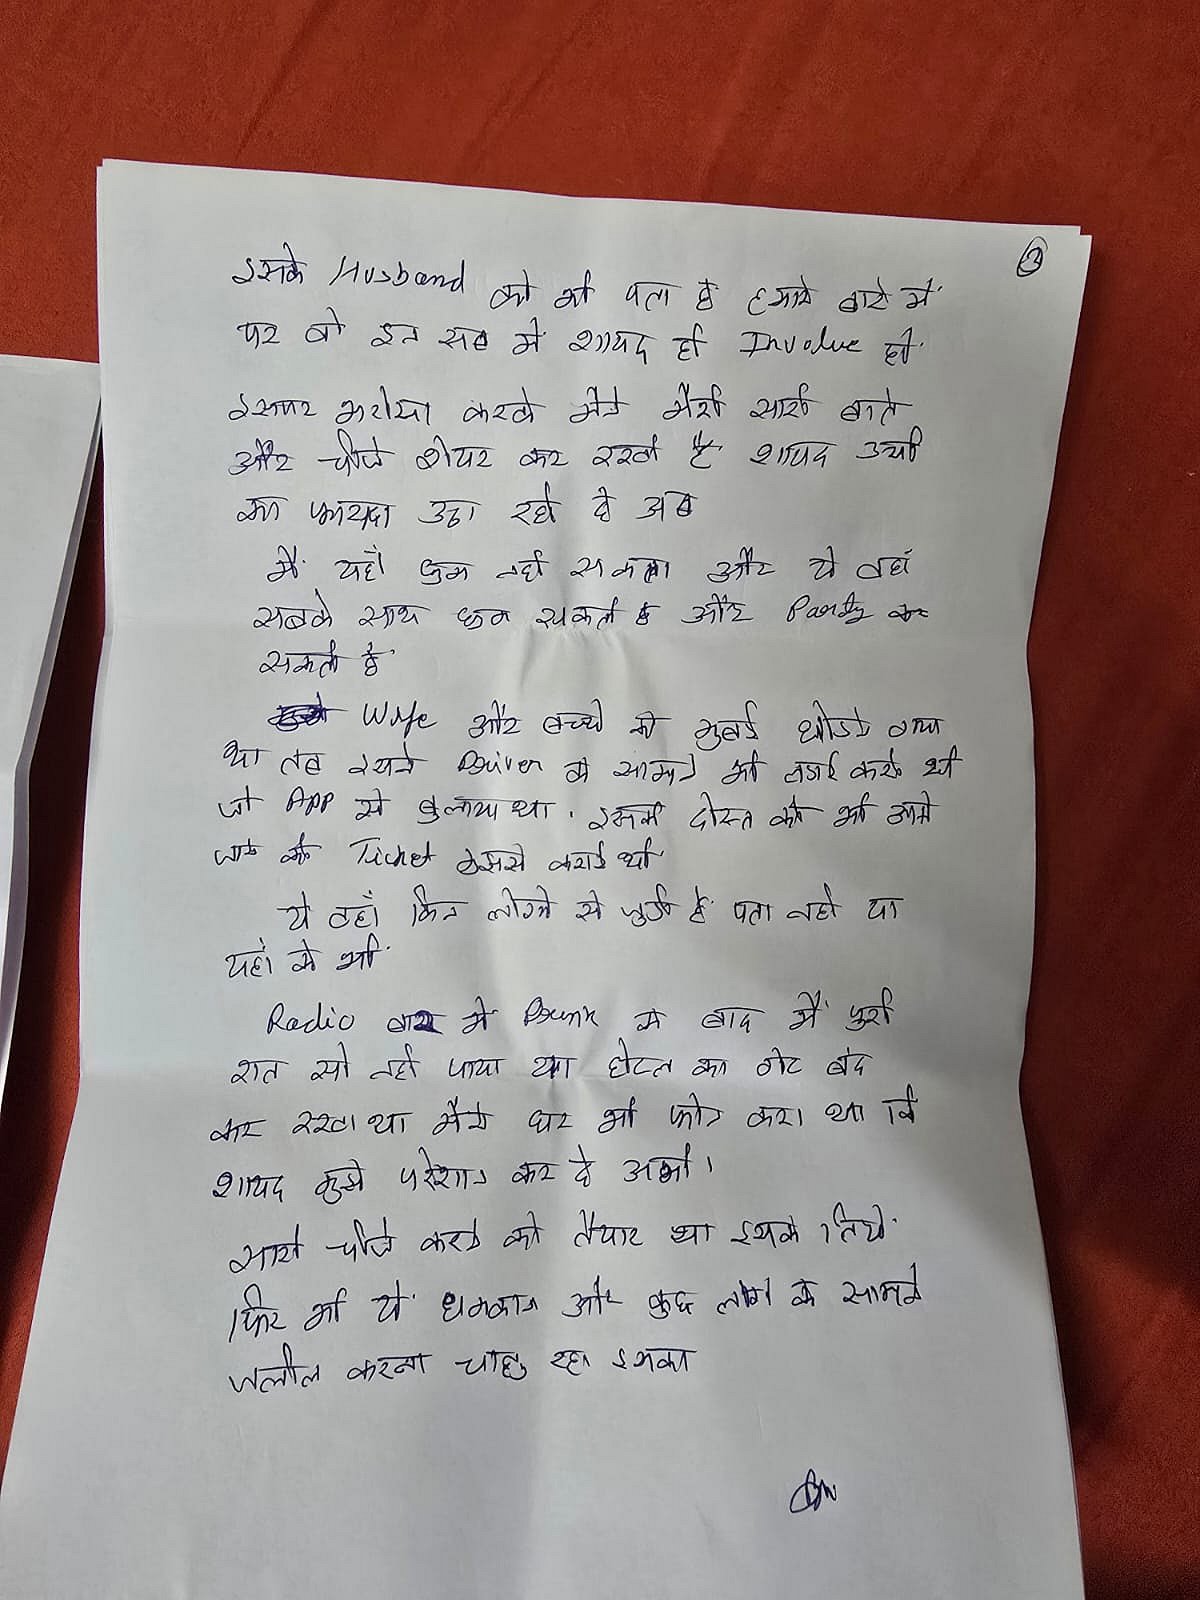 3
इसके Husband को भी पता है हमारे बारे में
पर वो इन सब में शायद ही Involve हो
इसपर भरोसा करके मैंने मेरी सारी बाते
और चीजे शेयर कर रखी है शायद उसी
का फायदा उठा रहे है अब
मैं यहाँ घुम नहीं सकता और ये वहाँ
सबके साथ घुम सकती है और Party कर
सकती है
Wife और बच्चे को मुंबई छोडने गया
था तब इसने Driver के सामने भी लडाई करी थी
जो App से बुलाया था। इसकी दोस्त की भी आने
जाने की Ticket कराई थी
ये वहाँ किन लोगो से जुडी है पता नहीं या
यहां के भी
Radio बार में Drunk के बाद मैं पुरी
रात सो नहीं पाया था होटल का गेट बंद
कर रखा था मैंने घर भी फोन करा था कि
शायद मुझे परेशान कर दे अभी।
सारी चीजे करने को तैयार था इसके लिये
फिर भी ये धमकाना और कुछ लोगो के सामने
जलील करना चाह रहा इसका